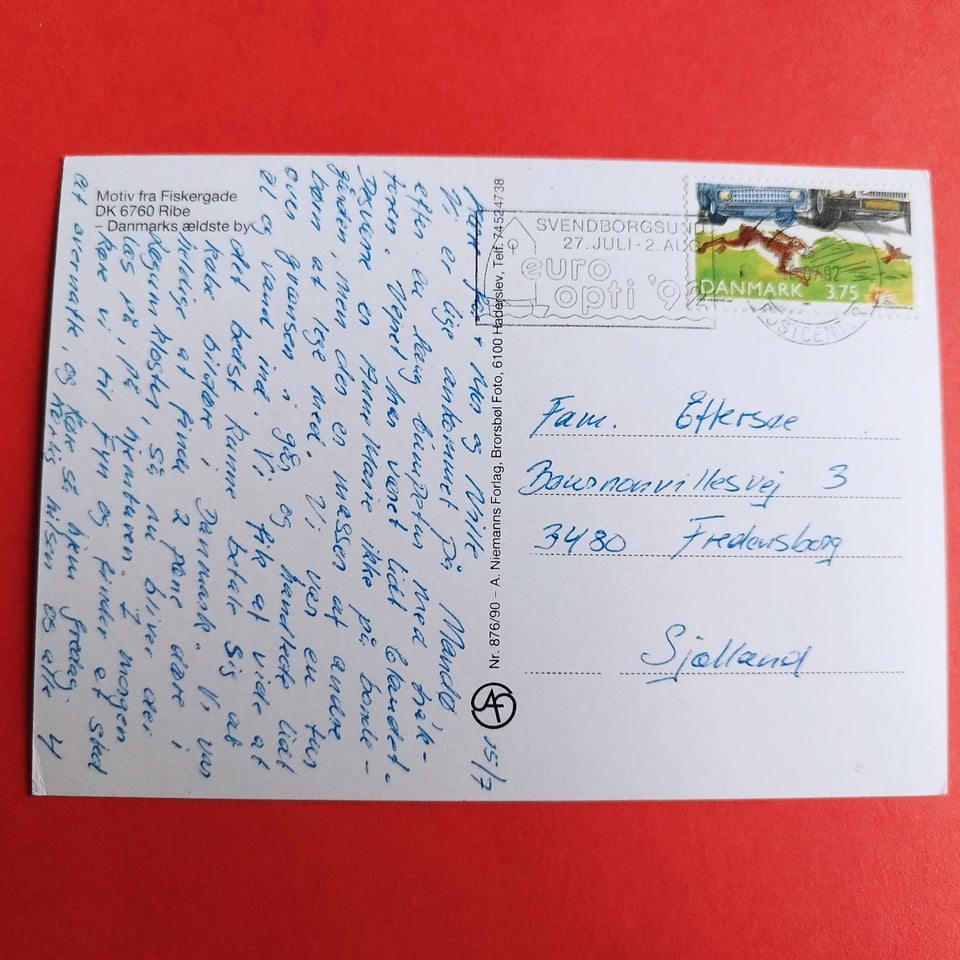 Motiv fra Fiskergade
DK 6760 Ribe
– Danmarks ældste by
15/7
og Nille
Vi er lige ankommet på Mandø
efter en lang biltur med trak-
toren. Vejret har været lidt blandet.
Desværre er Anne Marie ikke på bonde-
gården, men der er massen af andre
børn at lege med. Vi var en tur
over grænsen i går og handlede lidt
øl og vand ind. Vi fik at vide at
det bedst kunne betale sig at
købe bildæk i Danmark. Vi var
heldige at finde 2 pæne dæk i
Løgumkloster, så nu bliver der
læs på, på hjemturen. I morgen
kører vi til Fyn og finder et sted
at overnatte, og køre så hjem fredag.
hilsen os alle 4
Nr. 876/90 – A. Niemanns Forlag, Brorsbøl Foto, 6100 Haderslev, Telf. 74524738
SVENDBORGSUND
27. JULI - 2. AUG
euro
opti '92
DANMARK 3.75
07.92
POSTCENTER
Fam. Eftersøe
Bournonvillesvej 3
3480 Fredensborg
Sjælland